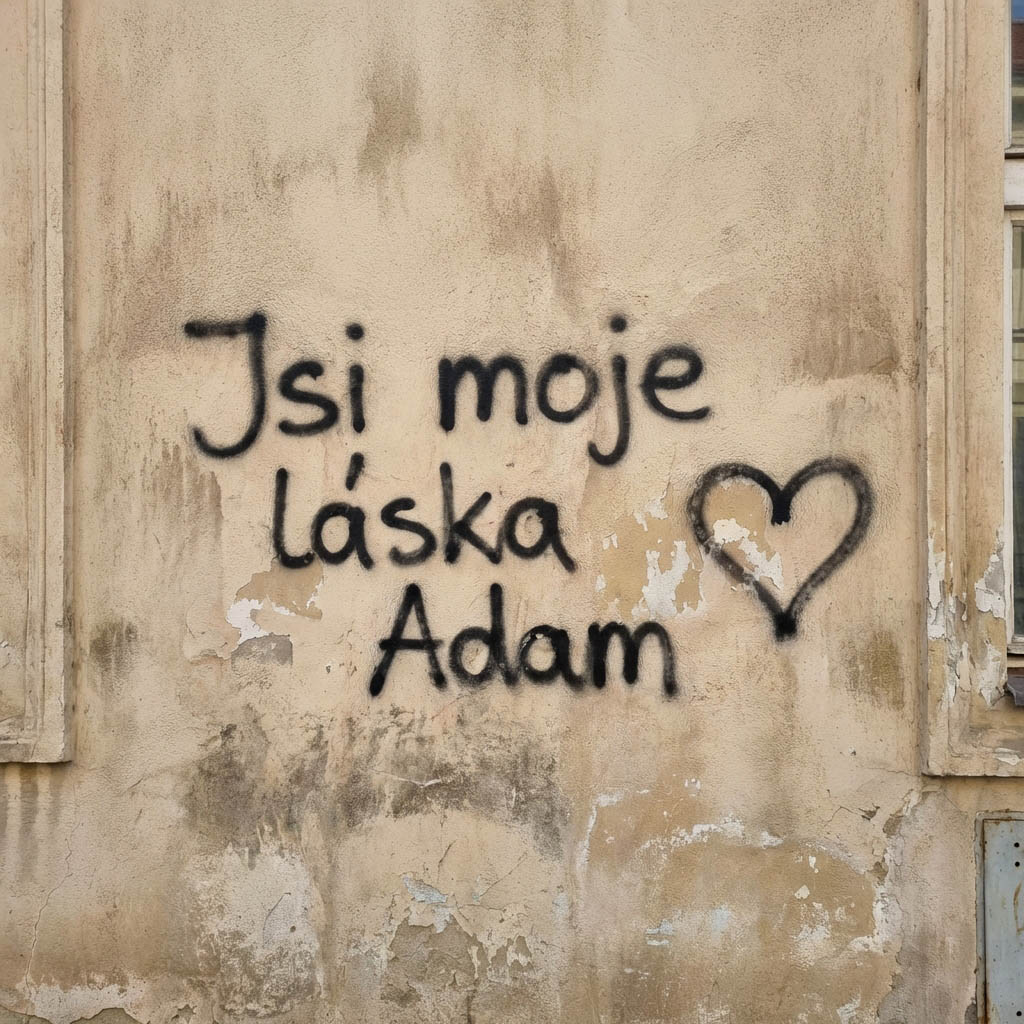 Jsi moje
láska
Adam